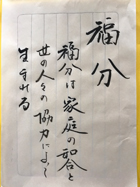 福分
福分は家庭の和合と
世の人々の協力によって
生まれる